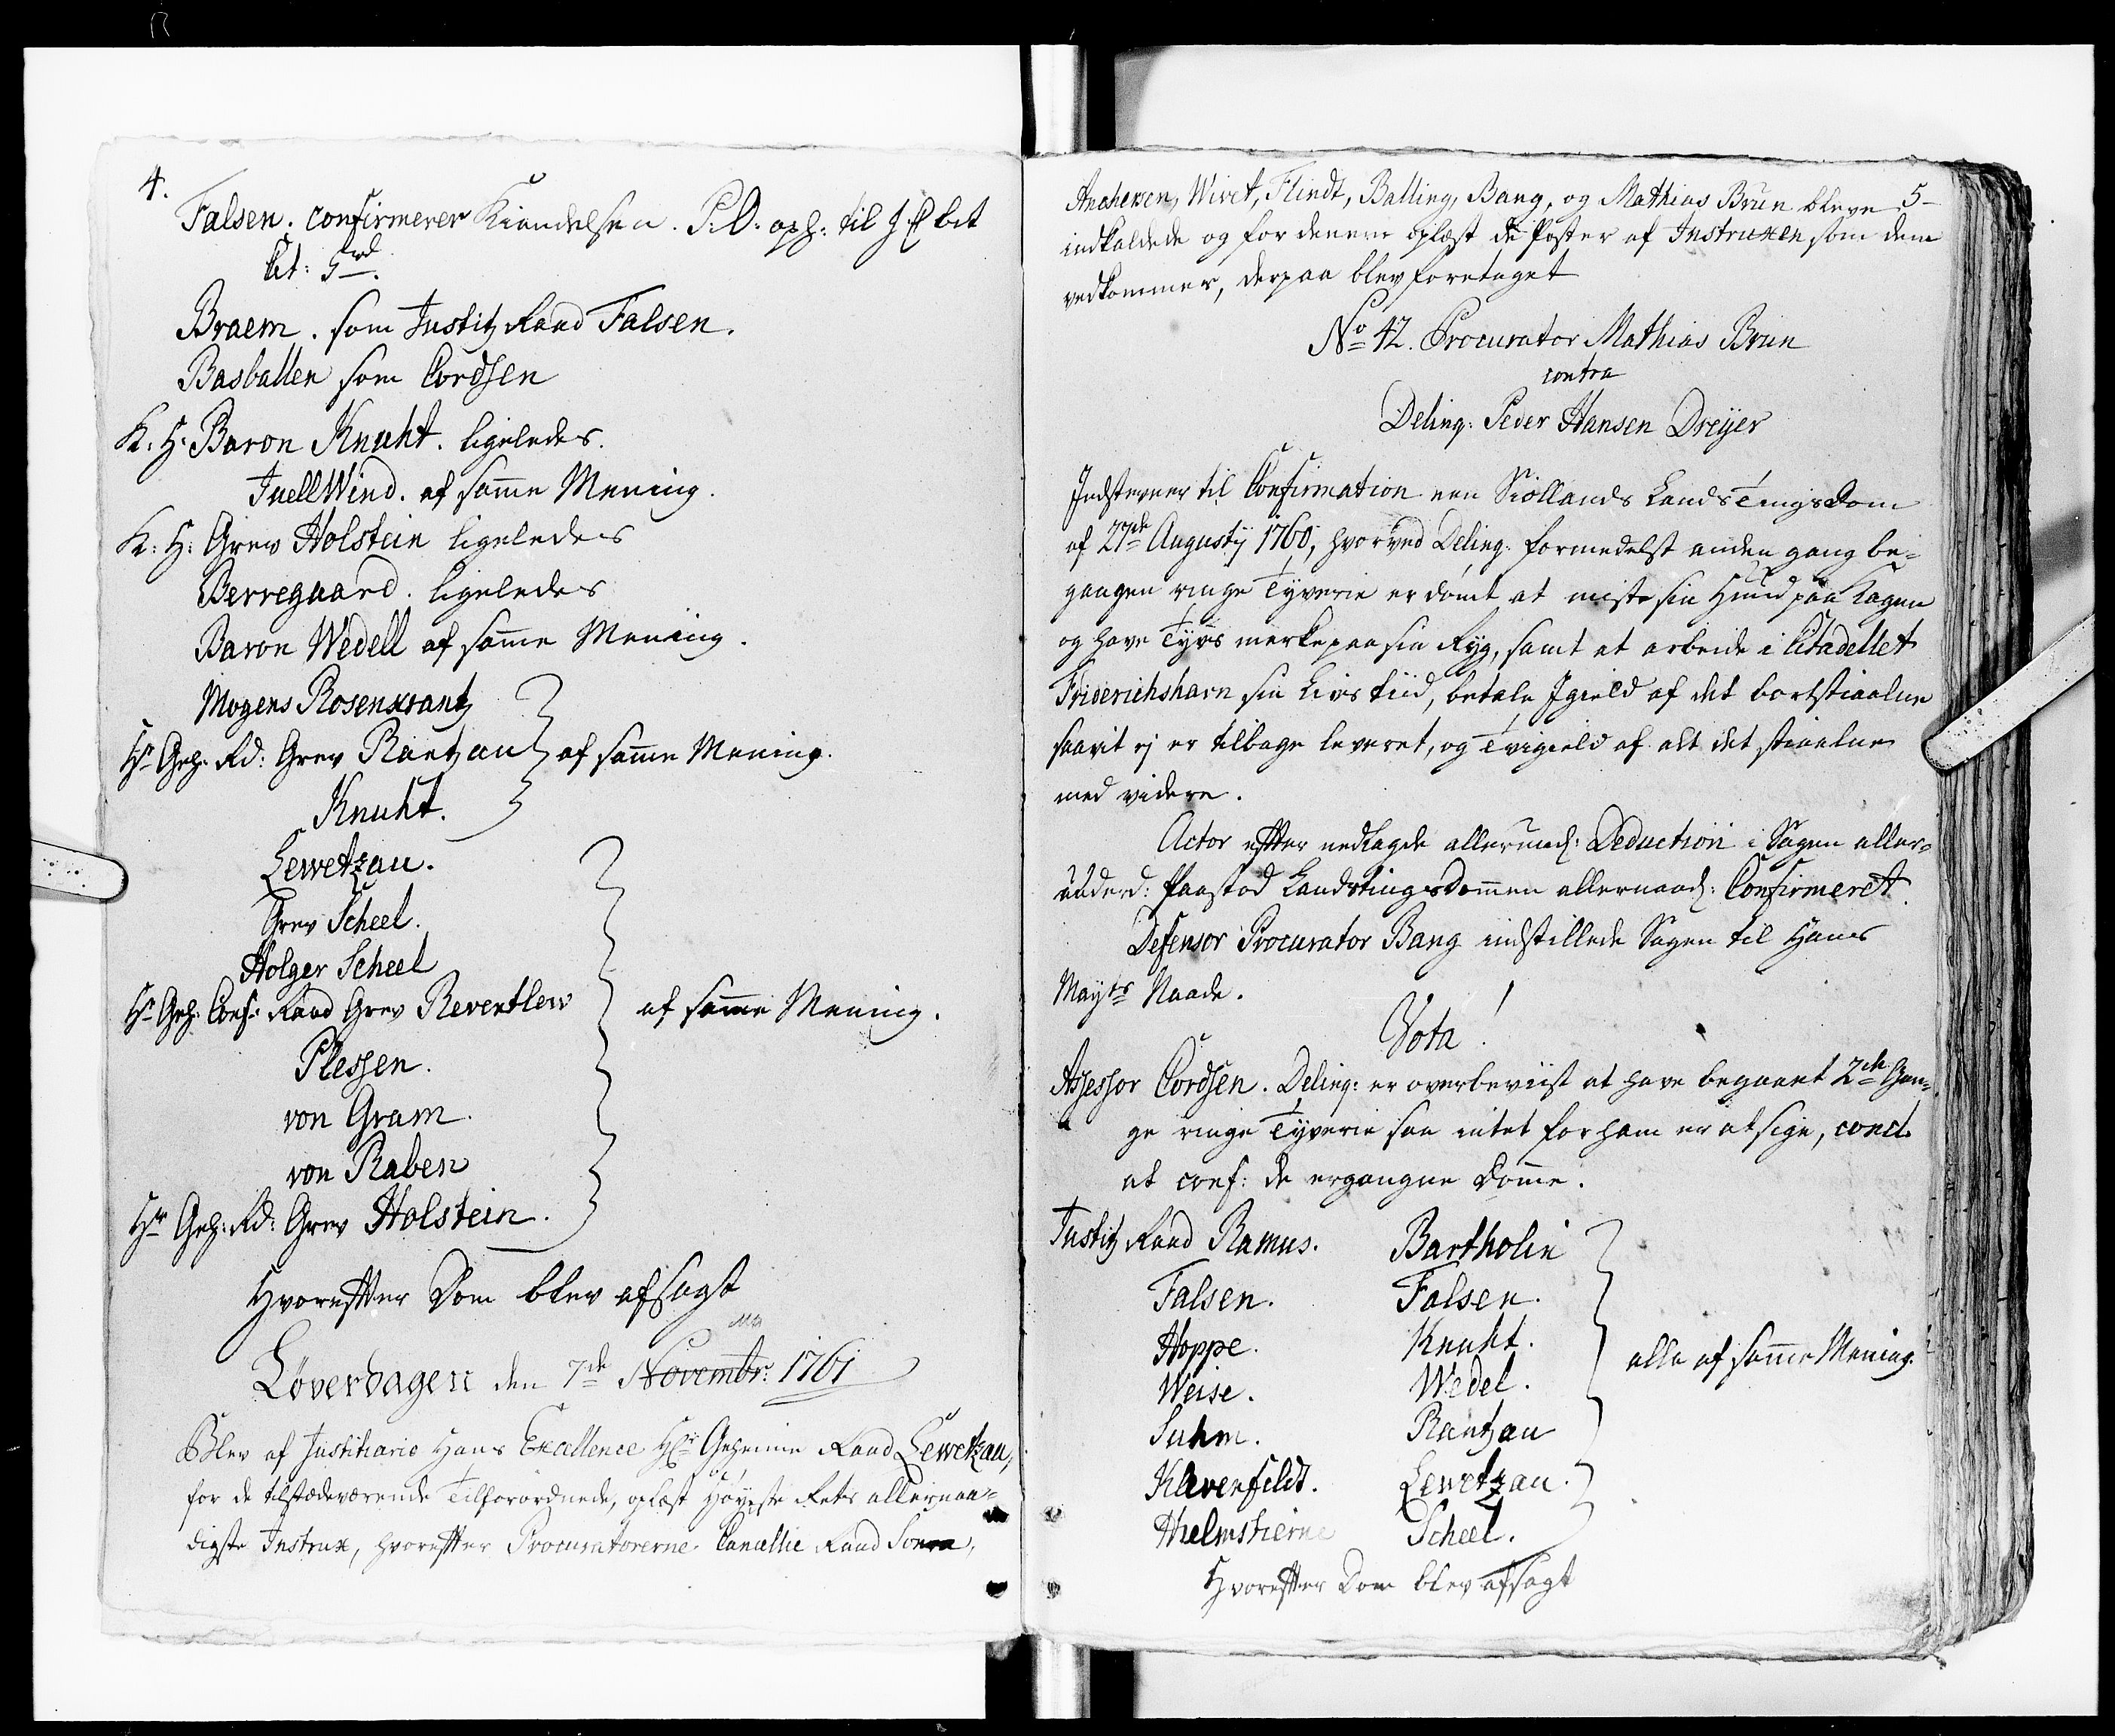 4.
Falsen. confirmerer Kiendelsen. P: O: oph: til J C bet
bet: 5 rd.
Braem. som Justitz Raad Falsen.
Basballen som Cordsen
K: H: Baron Knuht. ligeledes.
Juell Wind. af same Mening.
K: H: Grev Holstein ligeledes
Berregaard. ligeledes
Baron Wedell af same Mening.
Mogens Rosenkrantz
Hr Geh: Rd: Grev Rantzau af same Mening.
Knuht.
Lewetzau.
Grev Scheel.
Holger Scheel
Hr Geh: Conf: Raad Grev Reventlew af same Mening.
Plessen.
von Gram.
von Raben
Hr Geh: Rd: Grev Holstein.
Hvorefter Dom blev afsagt
Løverdagen den 7de Novembr: 1761
Blev af Justitiario Hans Excellence Hr Geheime Raad Lewetzau,
for de tilstædeværende Tilforordnede, oplæst Høyeste Rets allernaa-
digste Instrux, hvorefter Procuratorerne Cancellie Raad
Anchersen, Wivet, Flindt, Balling, Bang, og Mathias Brun bleve 5
indkaldede og for denem oplæst de Poster af Instruxen som dem
vedkommer, derpaa blev foretaget
No 42. Procurator Mathias Brun
contra
Delinq: Peder Hansen Dreyer
Indstevner til Confirmation een Siællands Lands Tings Dom
af 27de Augustij 1760, hvorved Delinq: formedelst anden gang be-
gaagen ringe Tyverie er dømt at miste sin Hund paa Kagen
og have Tyvs merke paa sin Ryg, samt at arbeide i Citadellet
Friderichshavn sin Livs tiid, betale Igield af det bortstiaalne
saavit ej er tilbage leveret, og Tvigield af alt det stiaalne
med videre.
Actor efter nedlagde allerund: Deduction i Sagen aller-
underd: Paastod Landstings Dommen allernaad: Confirmeret.
Defensor Procurator Bang indstillede Sagen til Hans
Mayts Naade.
Vota!
Assessor Cordsen. Delinq: er overbeviist at have begaaet 2de Gan-
ge ringe Tyverie saa intet for ham er at sige, concl.
at conf: de ergangne Dome.
Justitz Raad Ramus. Bartholin
Falsen. Falsen.
Hoppe. Knuht.
Weise. Wedel. alle af same Mening.
Suhm. Rantzau
Klevenfeldt. Lewetzau.
Hielmstierne Scheel.
Hvorefter Dom blev afsagt